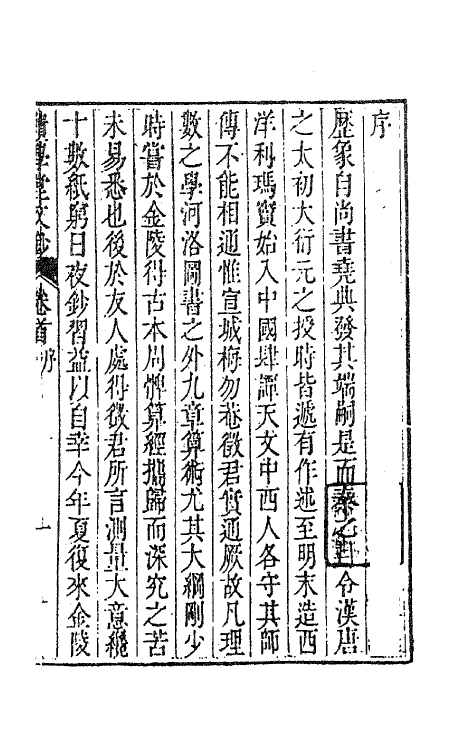 序
歷象自尚書堯典發其端嗣是而秦之令漢唐
之太初大衍元之授時皆遞有作述至明末造西
洋利瑪竇始入中國肆譚天文中西人各守其師
傳不能相通惟宣城梅勿菴徵君實通厥故凡理
數之學河洛圖書之外九章算術尤其大綱剛少
時嘗於金陵得古本周髀算經攜歸而深究之苦
未易悉也後於友人處得徵君所言測量大意纔
十數紙窮日夜鈔習益以自幸今年夏復來金陵
績學堂文鈔 卷首 序 一